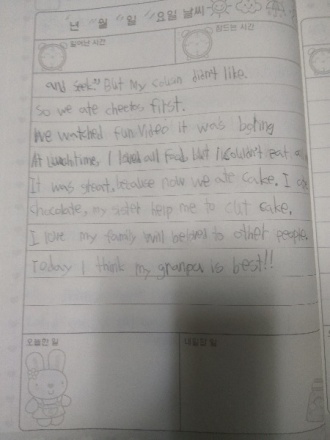 년 월 일 요일 날씨
일어난 시간
잠드는 시간
and seek" But my cousin didn't like.
so we ate cheetos first.
We watched fun video it was boring
At lunchtime, I loved all food, but I couldn't eat all
It was great, because now we ate cake. I ate
chocolate, my sister help me to cut cake.
I love my family will beloved to other people.
Today I think my granpa is best!!
오늘한 일
내일할 일